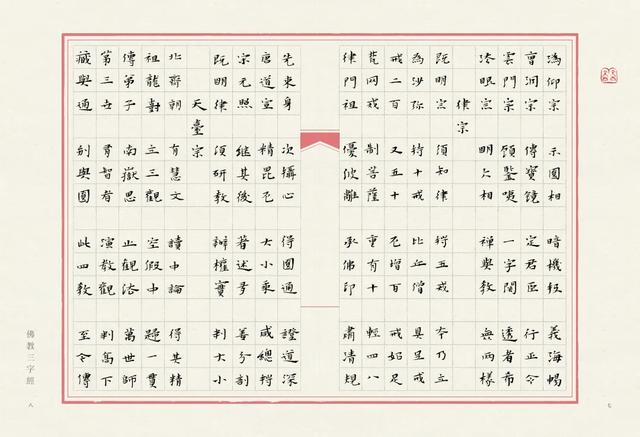 溈仰宗 示圓相 暗機投 義海暢
曹洞宗 傳寶鏡 定君臣 行正令
雲門宗 顧鑒咦 一字關 透者希
法眼宗 明六相 禪與教 無兩樣
律宗
既明宗 須知律 持五戒 本乃立
為沙彌 持十戒 比丘僧 具足戒
戒二百 又五十 尼增百 戒始足
梵网戒 制菩薩 重有十 輕四八
律門祖 優波離 承佛印 肅清規
先束身 次攝心 得圓通 證道深
唐道宣 精毘尼 大小乘 咸總持
宋元照 繼其後 著述多 善分剖
既明律 須研教 辯權實 判大小
天臺宗
北齊朝 有慧文 讀中論 得其精
祖龍樹 立三觀 空假中 歸一貫
傳弟子 南嶽思 止觀法 萬世師
第三世 有智者 演教觀 判高下
藏與通 別與圓 此四教 至今傳
佛教三字經
八
七